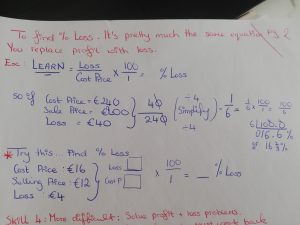 To find % Loss. It's pretty much the same equation
You replace profit with loss.
Ex: LEARN = Loss/Cost Price × 100/1 = % Loss
so if Cost Price = €240
Sale Price = €200
Loss = €40
40/240 ÷4 (Simplify) ÷4 = 1/6 = 1/6 × 100/1 = 100/6
6)100.0
016.6 %
or 16 2/3 %
* Try this... Find % Loss
Cost Price: €16
Selling Price: €12
Loss: €4
Loss
Cost P
× 100/1 = __ % Loss
SKILL 4: More difficult: Solve profit + loss problems.
work back